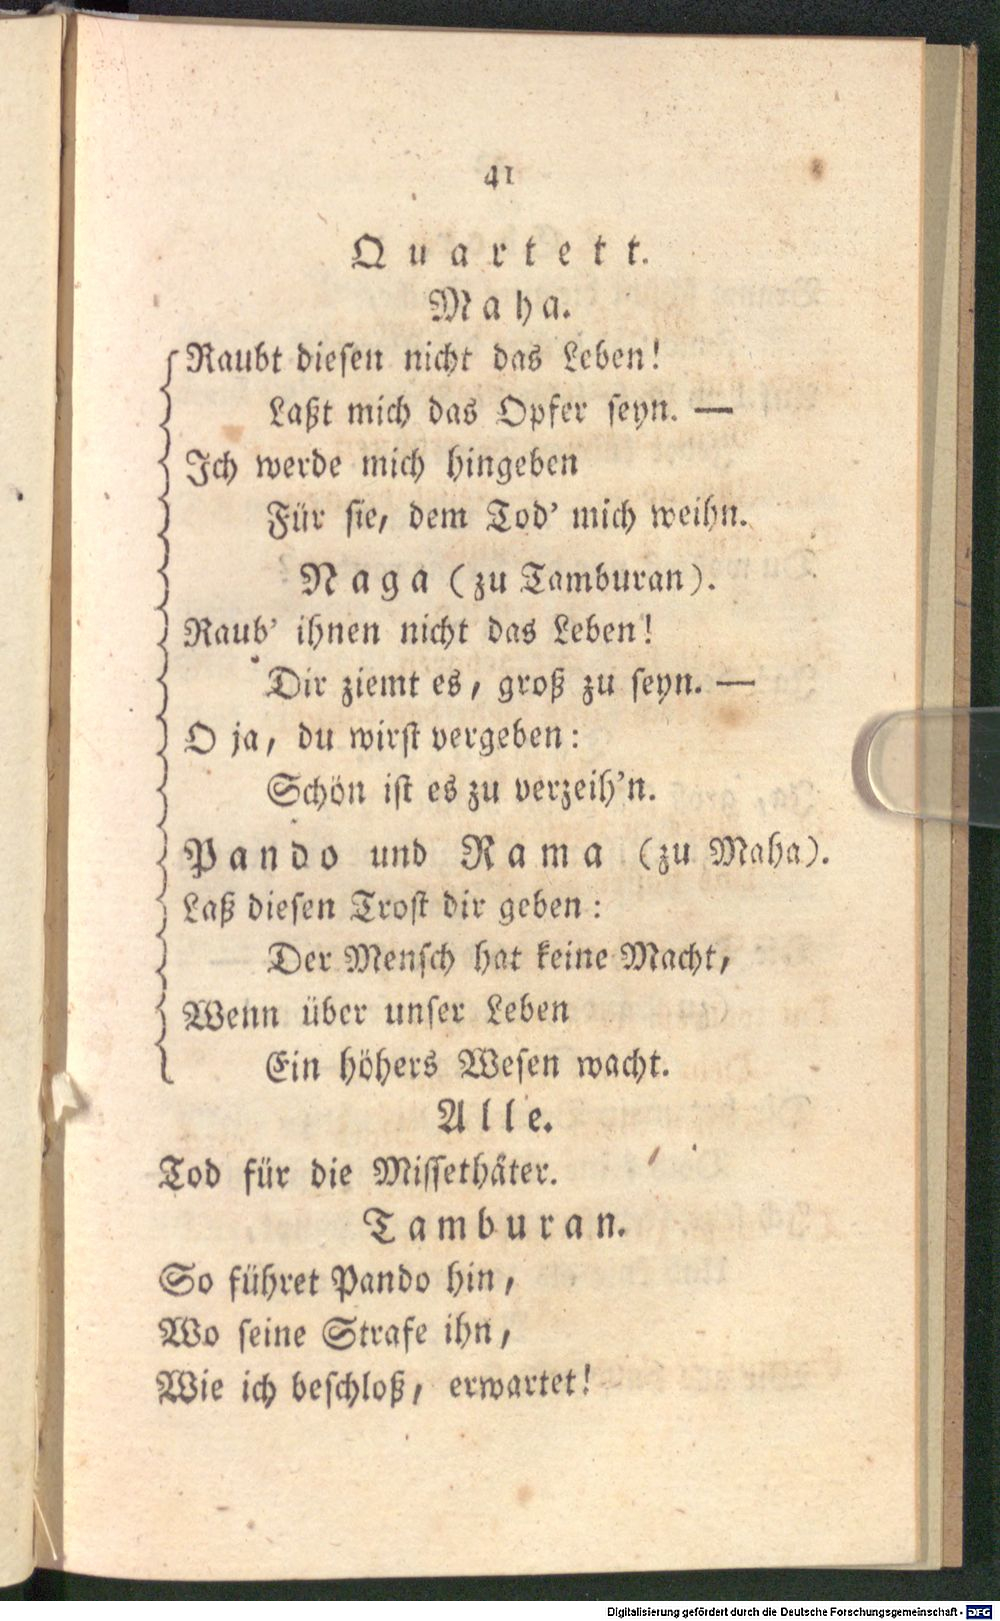 41
Quartett.
Maha.
Raubt dieſen nicht das Leben!
Laßt mich das Opfer ſeyn. —
Ich werde mich hingeben
Für ſie, dem Tod' mich weihn.
Naga (zu Tamburan).
Raub' ihnen nicht das Leben!
Dir ziemt es, groß zu ſeyn. —
O ja, du wirſt vergeben:
Schön iſt es zu verzeih'n.
Pando und Rama (zu Maha).
Laß dieſen Troſt dir geben:
Der Menſch hat keine Macht,
Wenn über unſer Leben
Ein höhers Weſen wacht.
Alle.
Tod für die Miſſethäter.
Tamburan.
So führet Pando hin,
Wo ſeine Strafe ihn,
Wie ich beſchloß, erwartet!
Digitalisierung gefördert durch die Deutsche Forschungsgemeinschaft - DFG